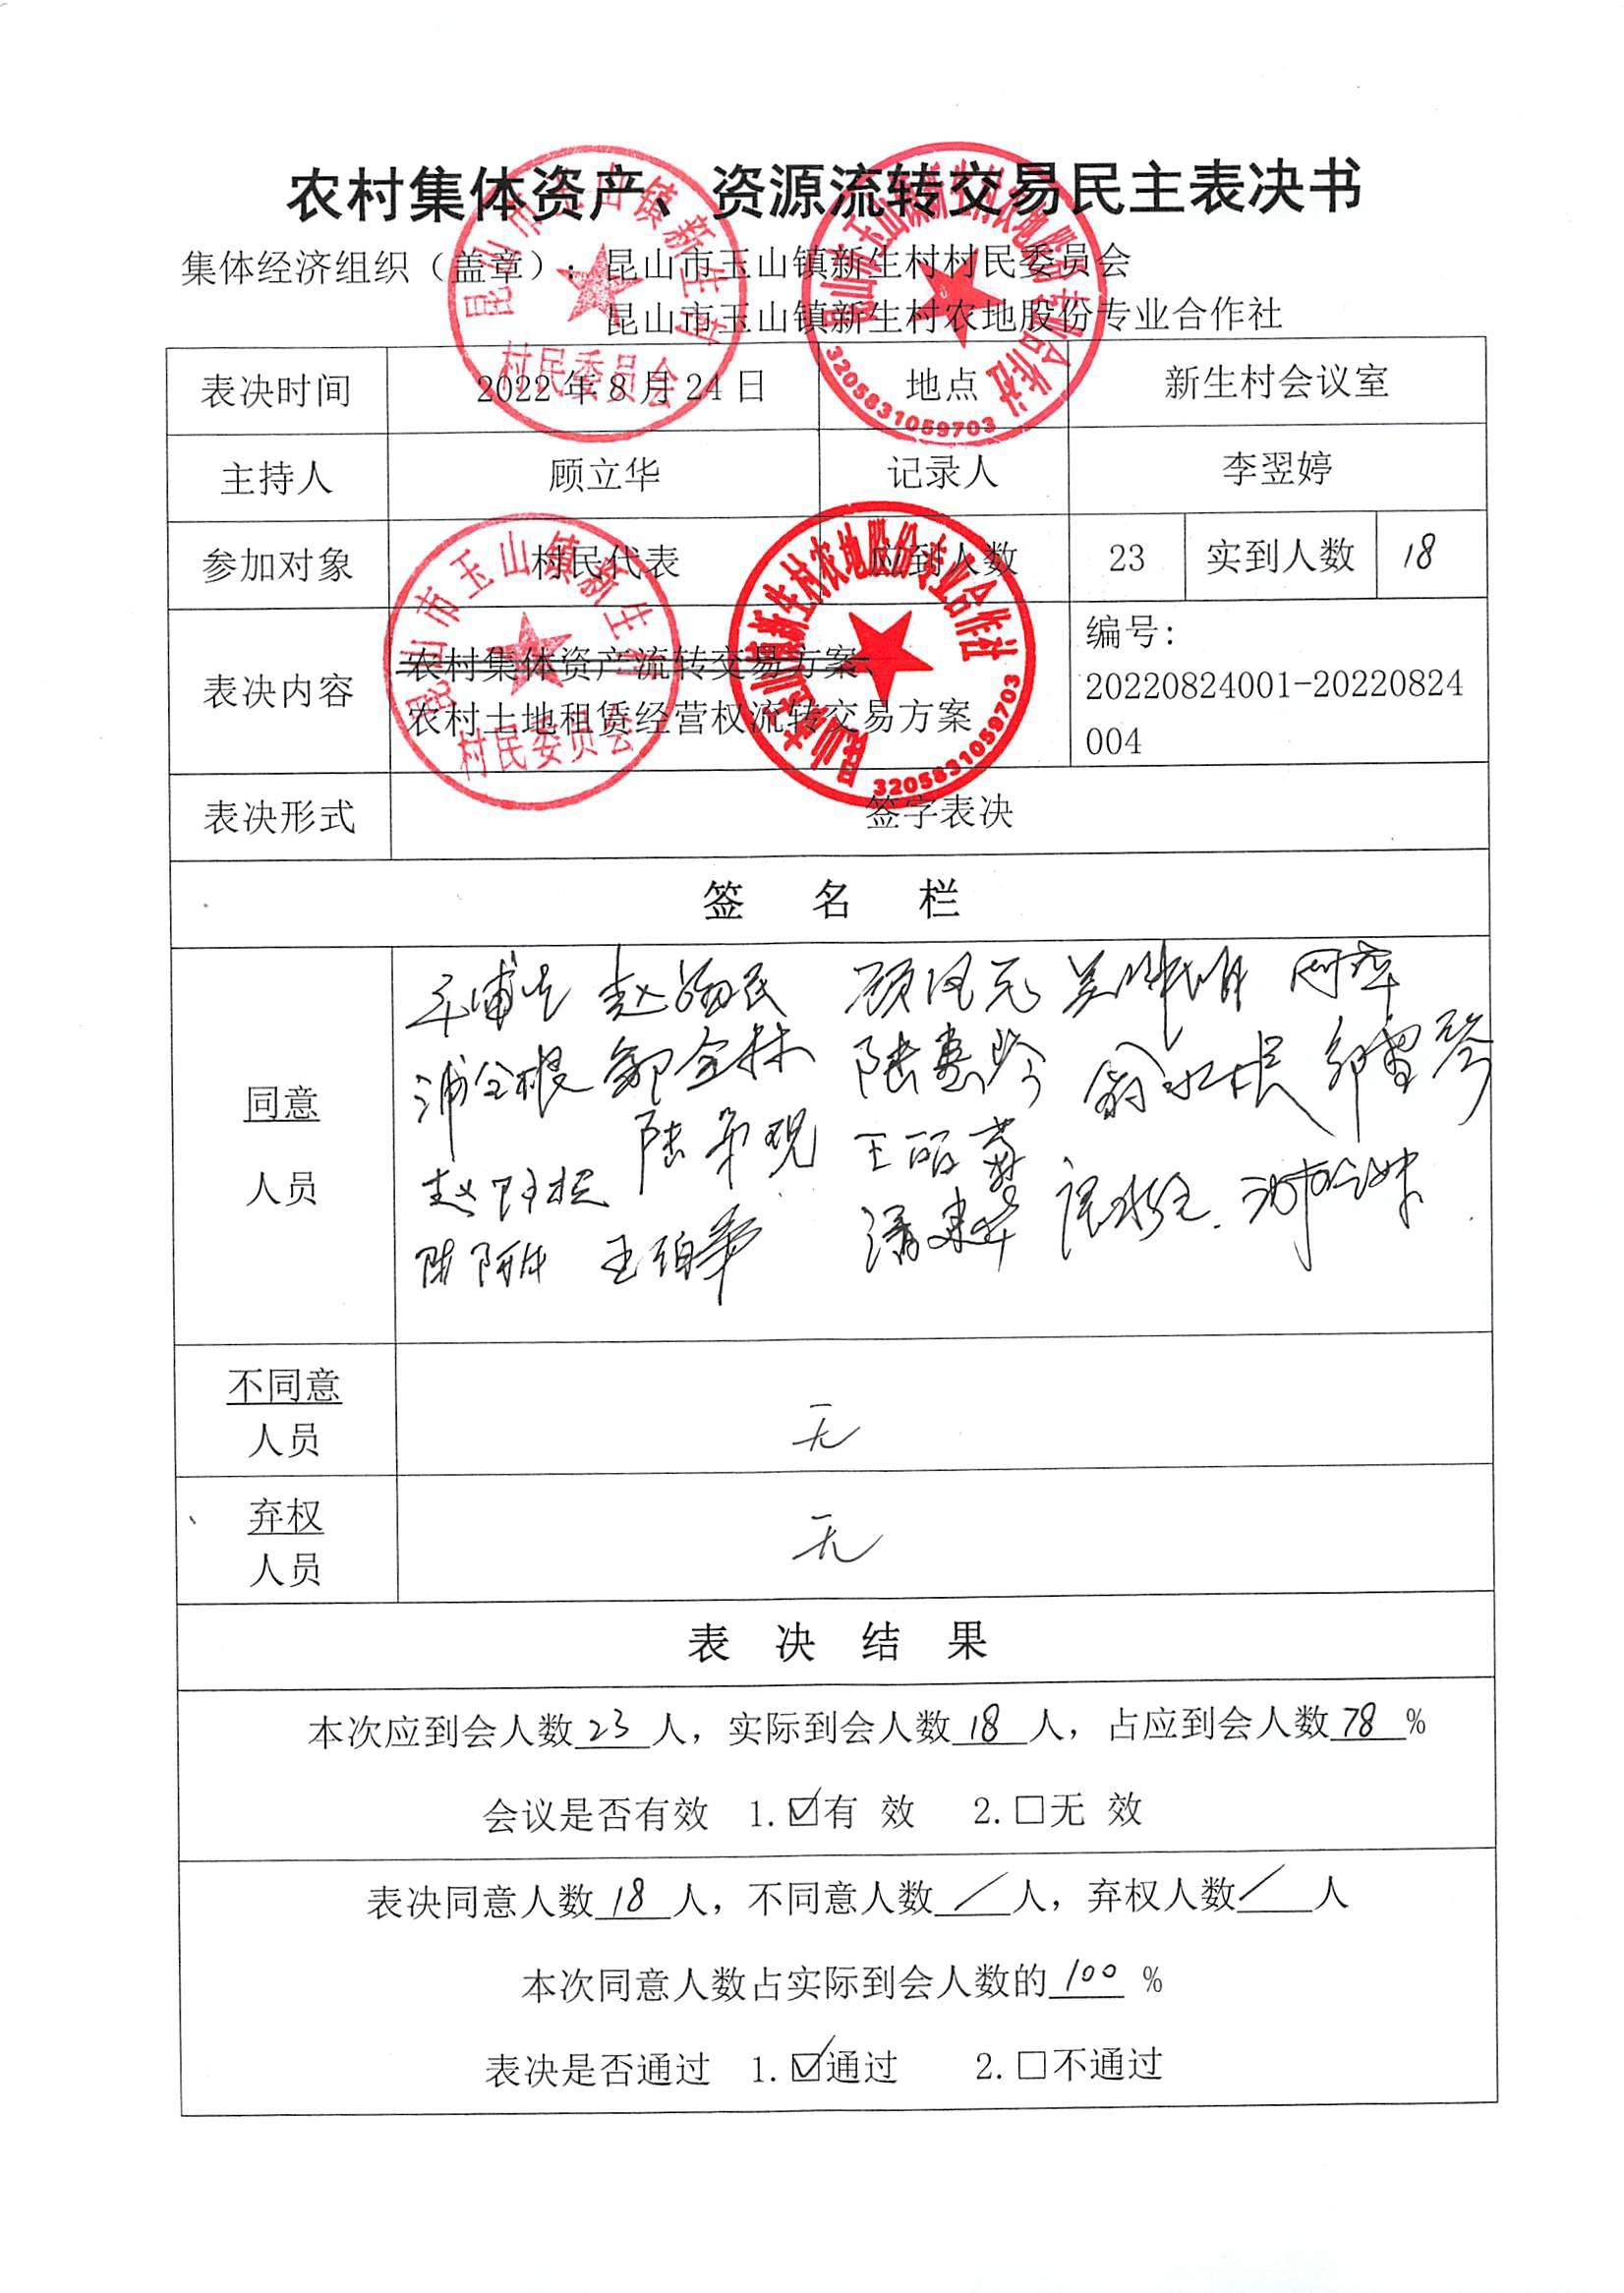 农村集体资产、资源流转交易民主表决书
集体经济组织（盖章）：昆山市玉山镇新生村村民委员会
昆山市玉山镇新生村农地股份专业合作社
昆山市玉山镇新生村
村民委员会
昆山市玉山镇新生村农地股份专业合作社
3205831059703
表决时间 2022年8月24日 地点 新生村会议室
主持人 顾立华 记录人 李翌婷
参加对象 村民代表 应到人数 23 实到人数 18
表决内容 农村集体资产流转交易方案、
农村土地租赁经营权流转交易方案
编号：
20220824001-20220824
004
昆山市玉山镇新生村
村民委员会
昆山市玉山镇新生村农地股份专业合作社
3205831059703
表决形式 签字表决
签 名 栏
同意
人员
浦全根 邹金林
王丽
王伯华
不同意
人员
无
弃权
人员
无
表 决 结 果
本次应到会人数23人，实际到会人数18人，占应到会人数78%
会议是否有效 1.☑有 效 2.□无 效
表决同意人数18人，不同意人数/人，弃权人数/人
本次同意人数占实际到会人数的100%
表决是否通过 1.☑通过 2.□不通过